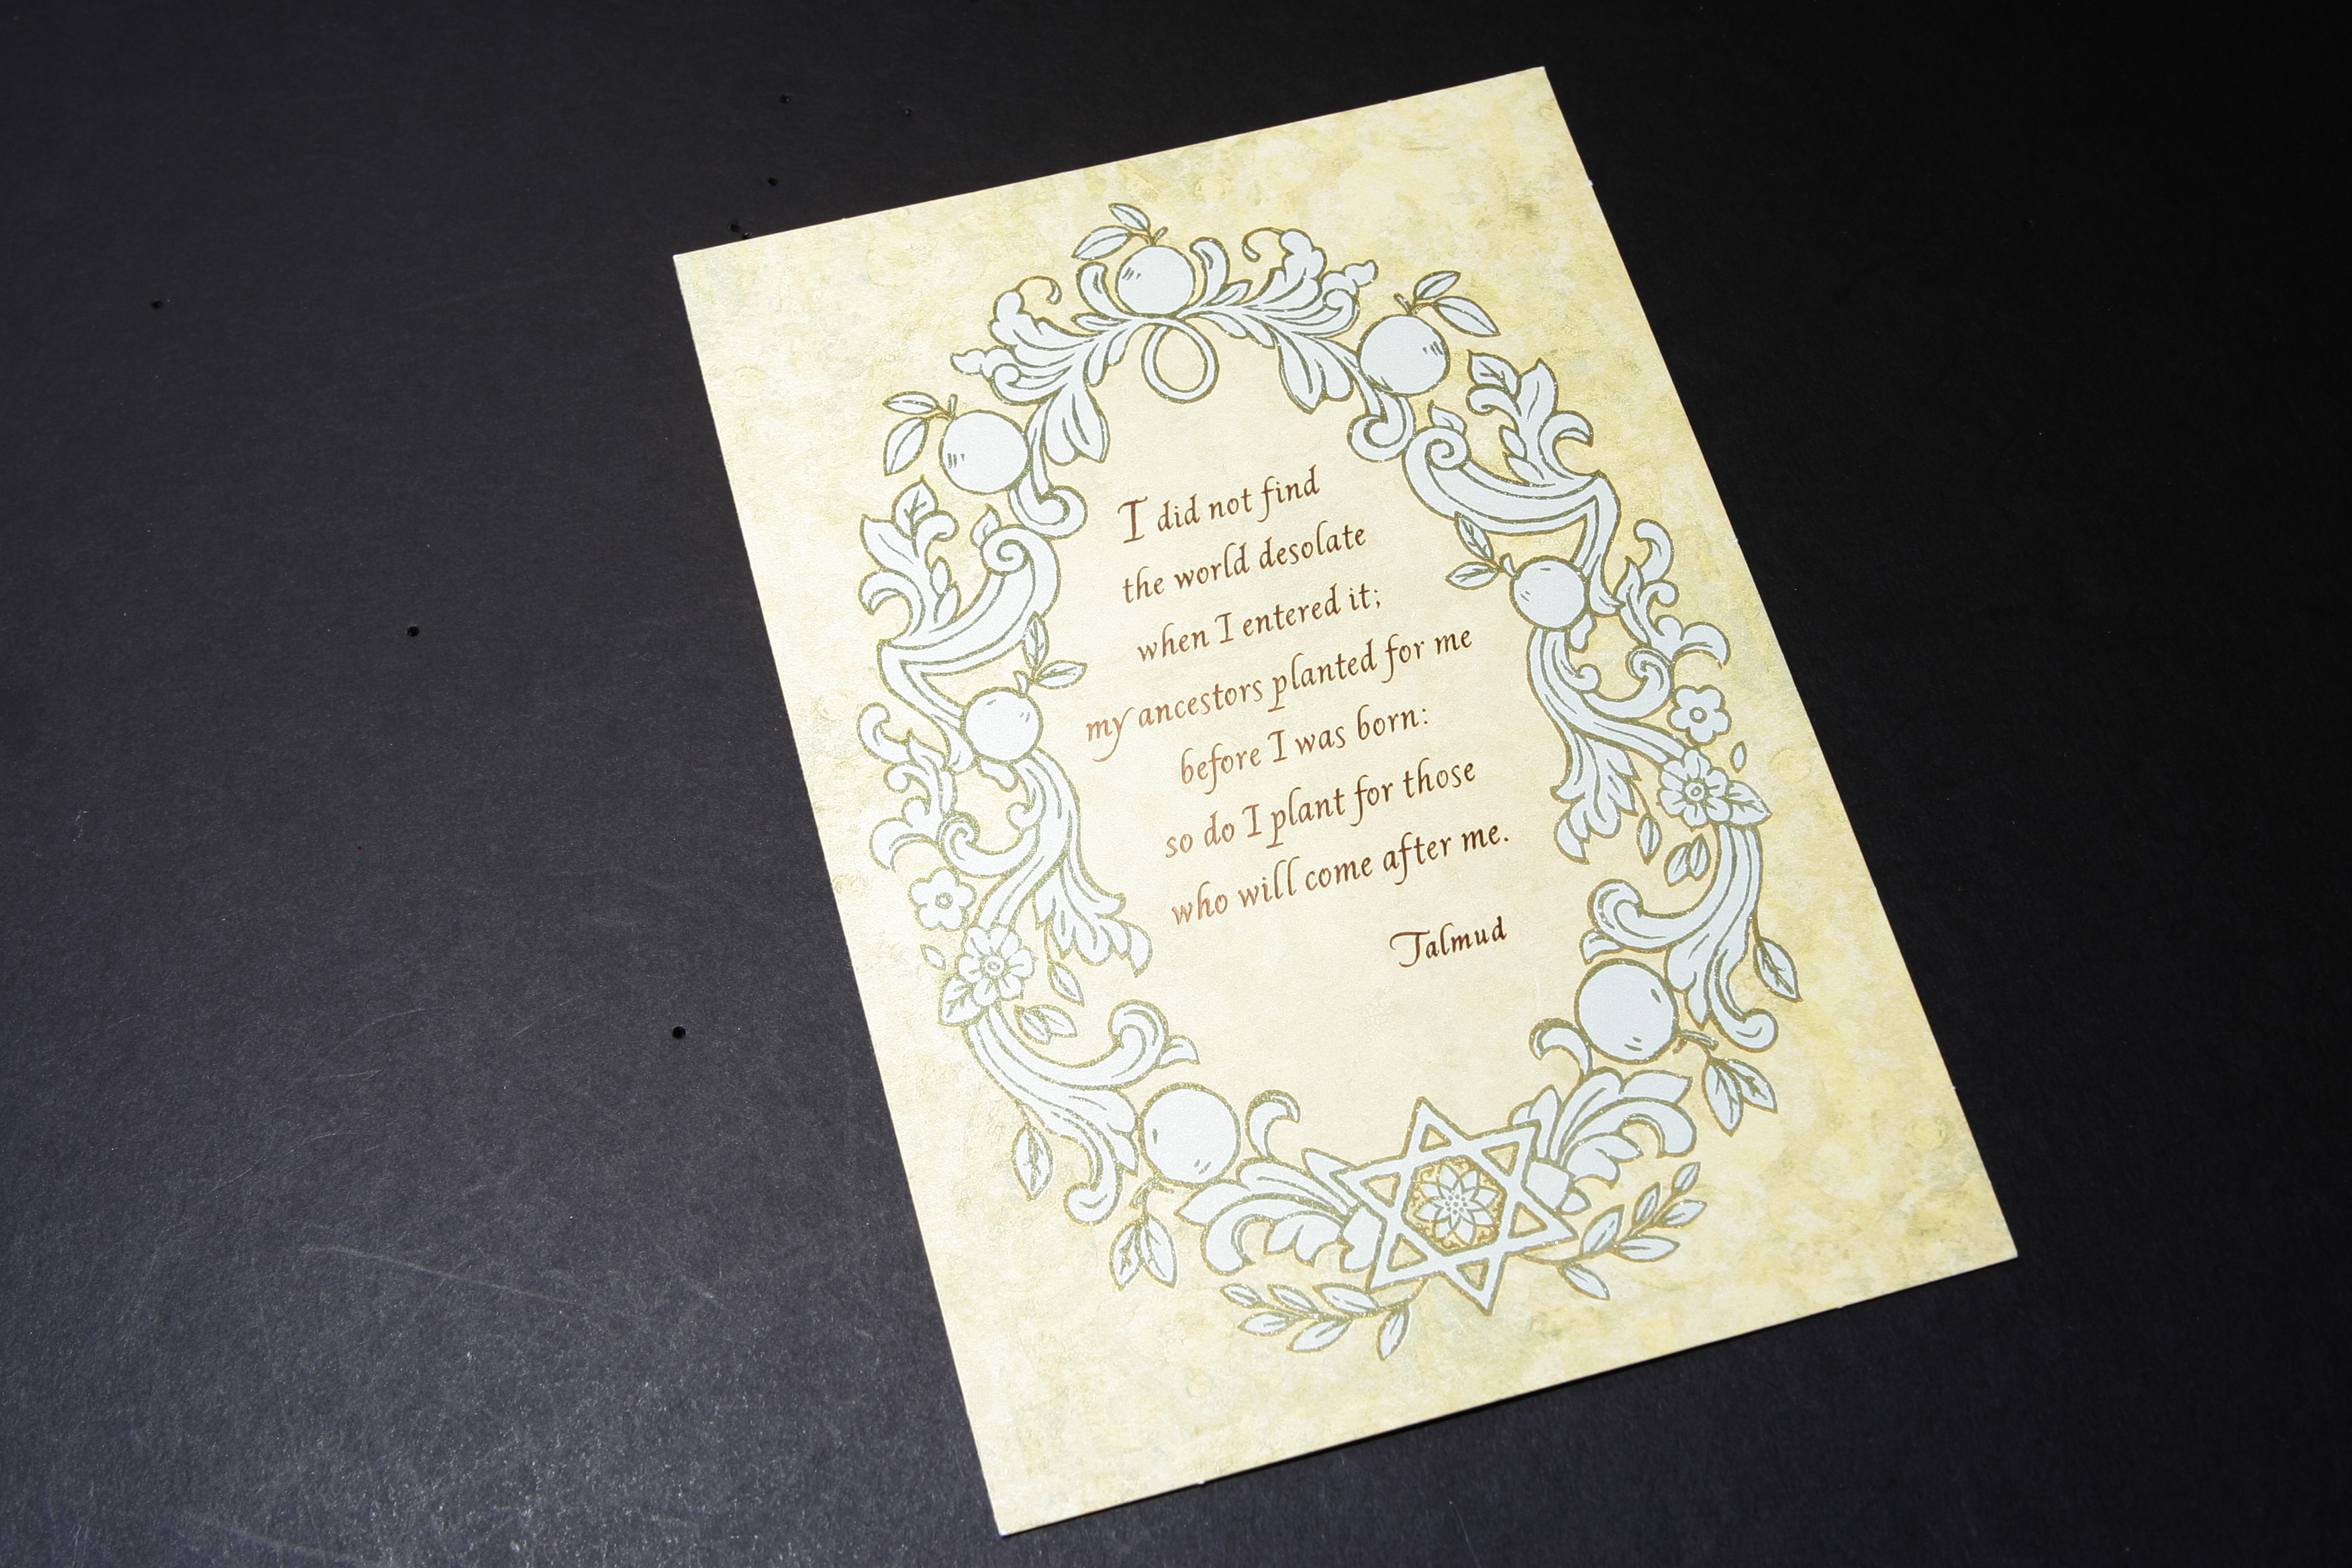 I did not find
the world desolate
when I entered it;
my ancestors planted for me
before I was born:
so do I plant for those
who will come after me.
Talmud